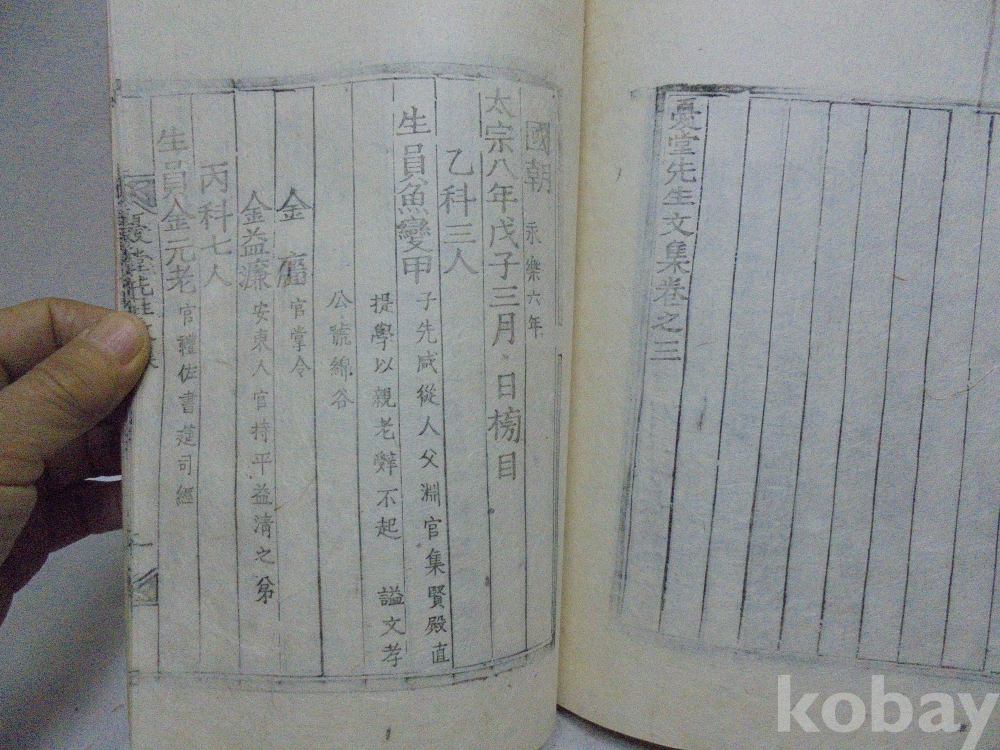 憂堂先生文集卷之三
國朝 永樂六年
太宗八年戊子三月 日榜目
乙科三人
生員魚變甲 子先咸從人父淵官集賢殿直
提學以親老辭不起 謚文孝
公號綿谷
金 官掌令
金益濂 安東人官持平益清之弟
丙科七人
生員金元老 官禮佐書筵司經
憂堂先生文集
kobay